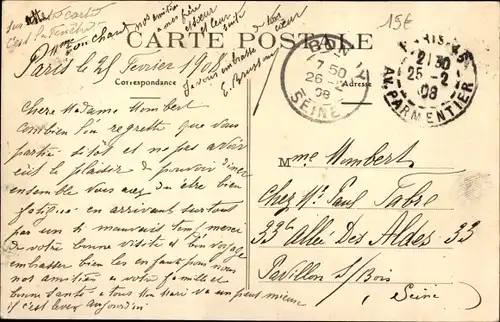 nos amitiés
a mes frère
et soeur
et leur
de tout
coeur
Je vous embrasse
15€
CARTE POSTALE
Paris le 25 fevrier 1908
Correspondance
Adresse
BONDY
7 50
26 - 2
08
SEINE
PARIS XI
21 30
25 - 2
08
AV. PARMENTIER
Chere Madame Mombert
Combien l'on regrette que vous
partie si tôt et ne pas avoir
eut le plaisir de pouvoir diner
ensemble vous avez du être bien
fatiguée en arrivant surtout
par un si mauvais temp merci
de votre bonne visite et bon voyage
embrasser bien les enfants pour nous
nos amitiées a votre famille et
bonne Santé a tous Mon Mari va un peut mieux
il c'est lever aujourd'hui
Mme Mombert
Chez Mr Paul Fabre
33b allée Des Aldes 33
Pavillon S/Bois
Seine